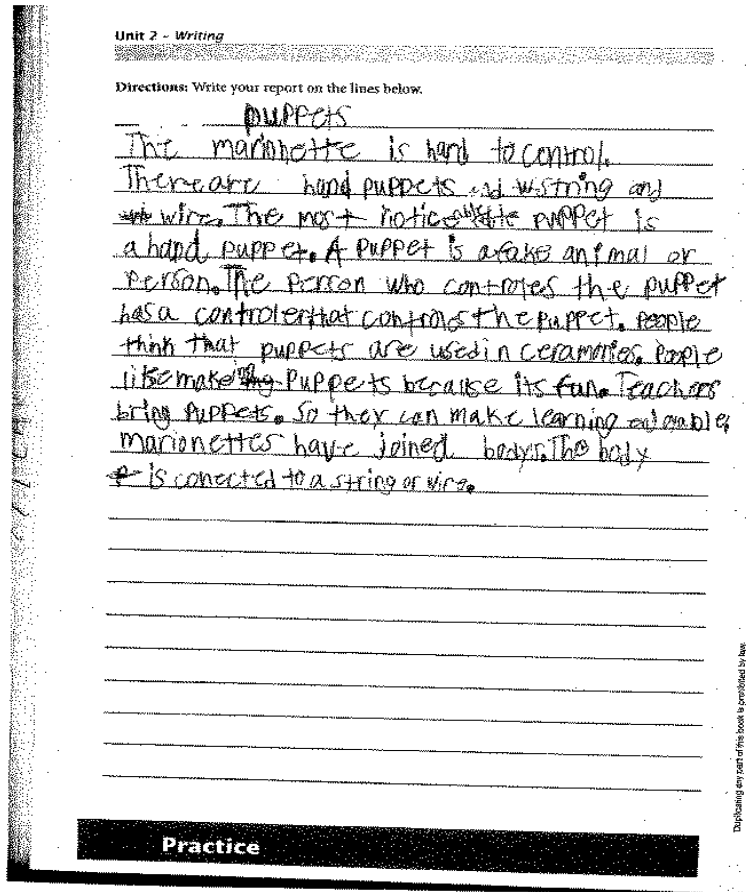 Unit 2 – Writing
Directions: Write your report on the lines below.
puppets
The marionette is hard to control.
There are hand puppets and string and
wire. The most noticeable puppet is
a hand puppet. A puppet is a fake animal or
Person. The person who controles the puppet
has a controler that controls the puppet. People
think that puppets are used in ceramonies. People
like making Puppets because its fun. Teachers
bring Puppets. So they can make learning
marionettes have joined bodys. The body
is conected to a string or wire.
Practice
Duplicating any part of this book is prohibited by law.